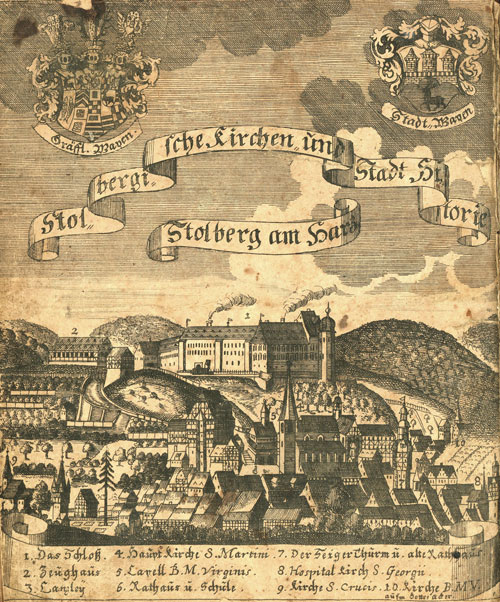 Gräffl. Wapen
Stadt-Wapen
Stolbergische Kirchen- und Stadt Historie
Stolberg am Hartz
2
1
5
8
1. Das Schloß. 4. Haupt Kirche S. Martini 7. Der Seiger Thurm u. alte Rathaus
2 Zeughaus 5. Capell B. M. Virginis. 8. Hospital Kirch S. Georgii
3. Cantzley 6. Rathaus u. Schule. 9. Kirche S. Crucis. 10. Kirche B. M. V.